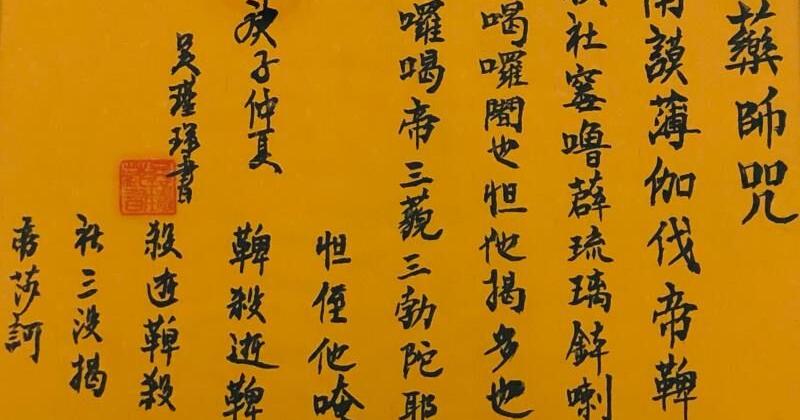 藥師咒
南謨薄伽伐帝鞞
殺社窶嚕薜琉璃鉢喇
喝囉闍也怛他揭多也
囉喝帝三藐三勃陀耶
怛侄他唵
鞞殺逝鞞
殺逝鞞殺
社三没揭
帝莎訶
庚子仲夏
吴書